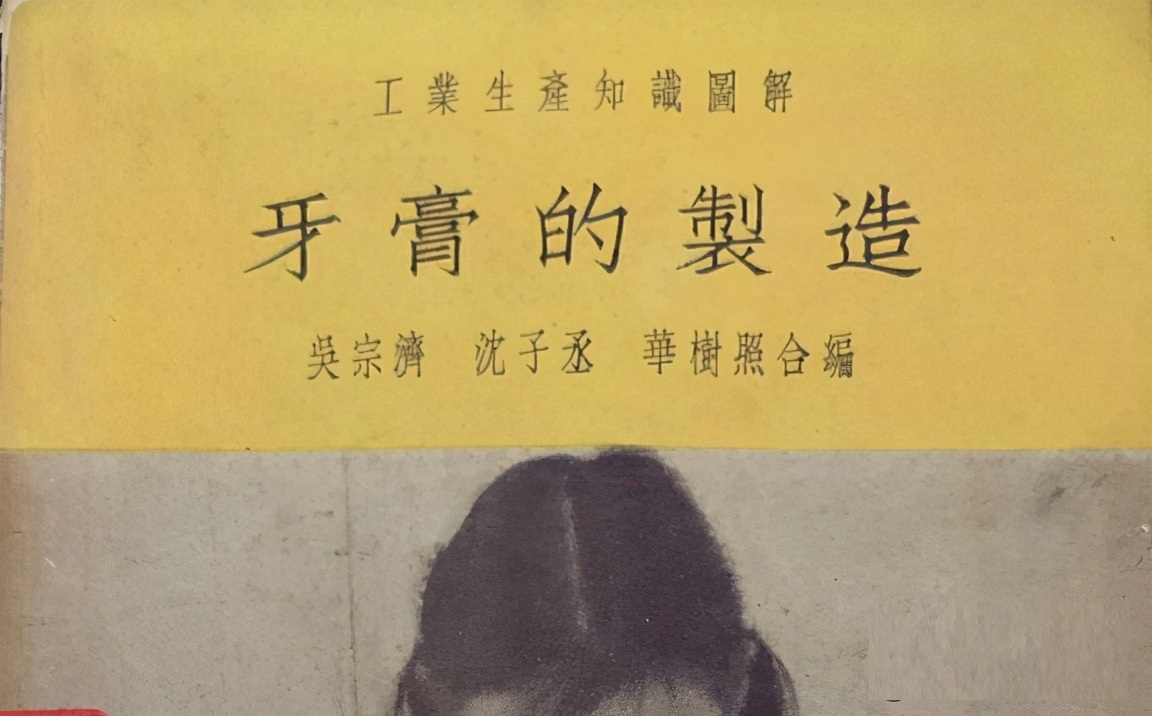 工業生產知識圖解
牙膏的製造
吳宗濟 沈子丞 華樹照合編